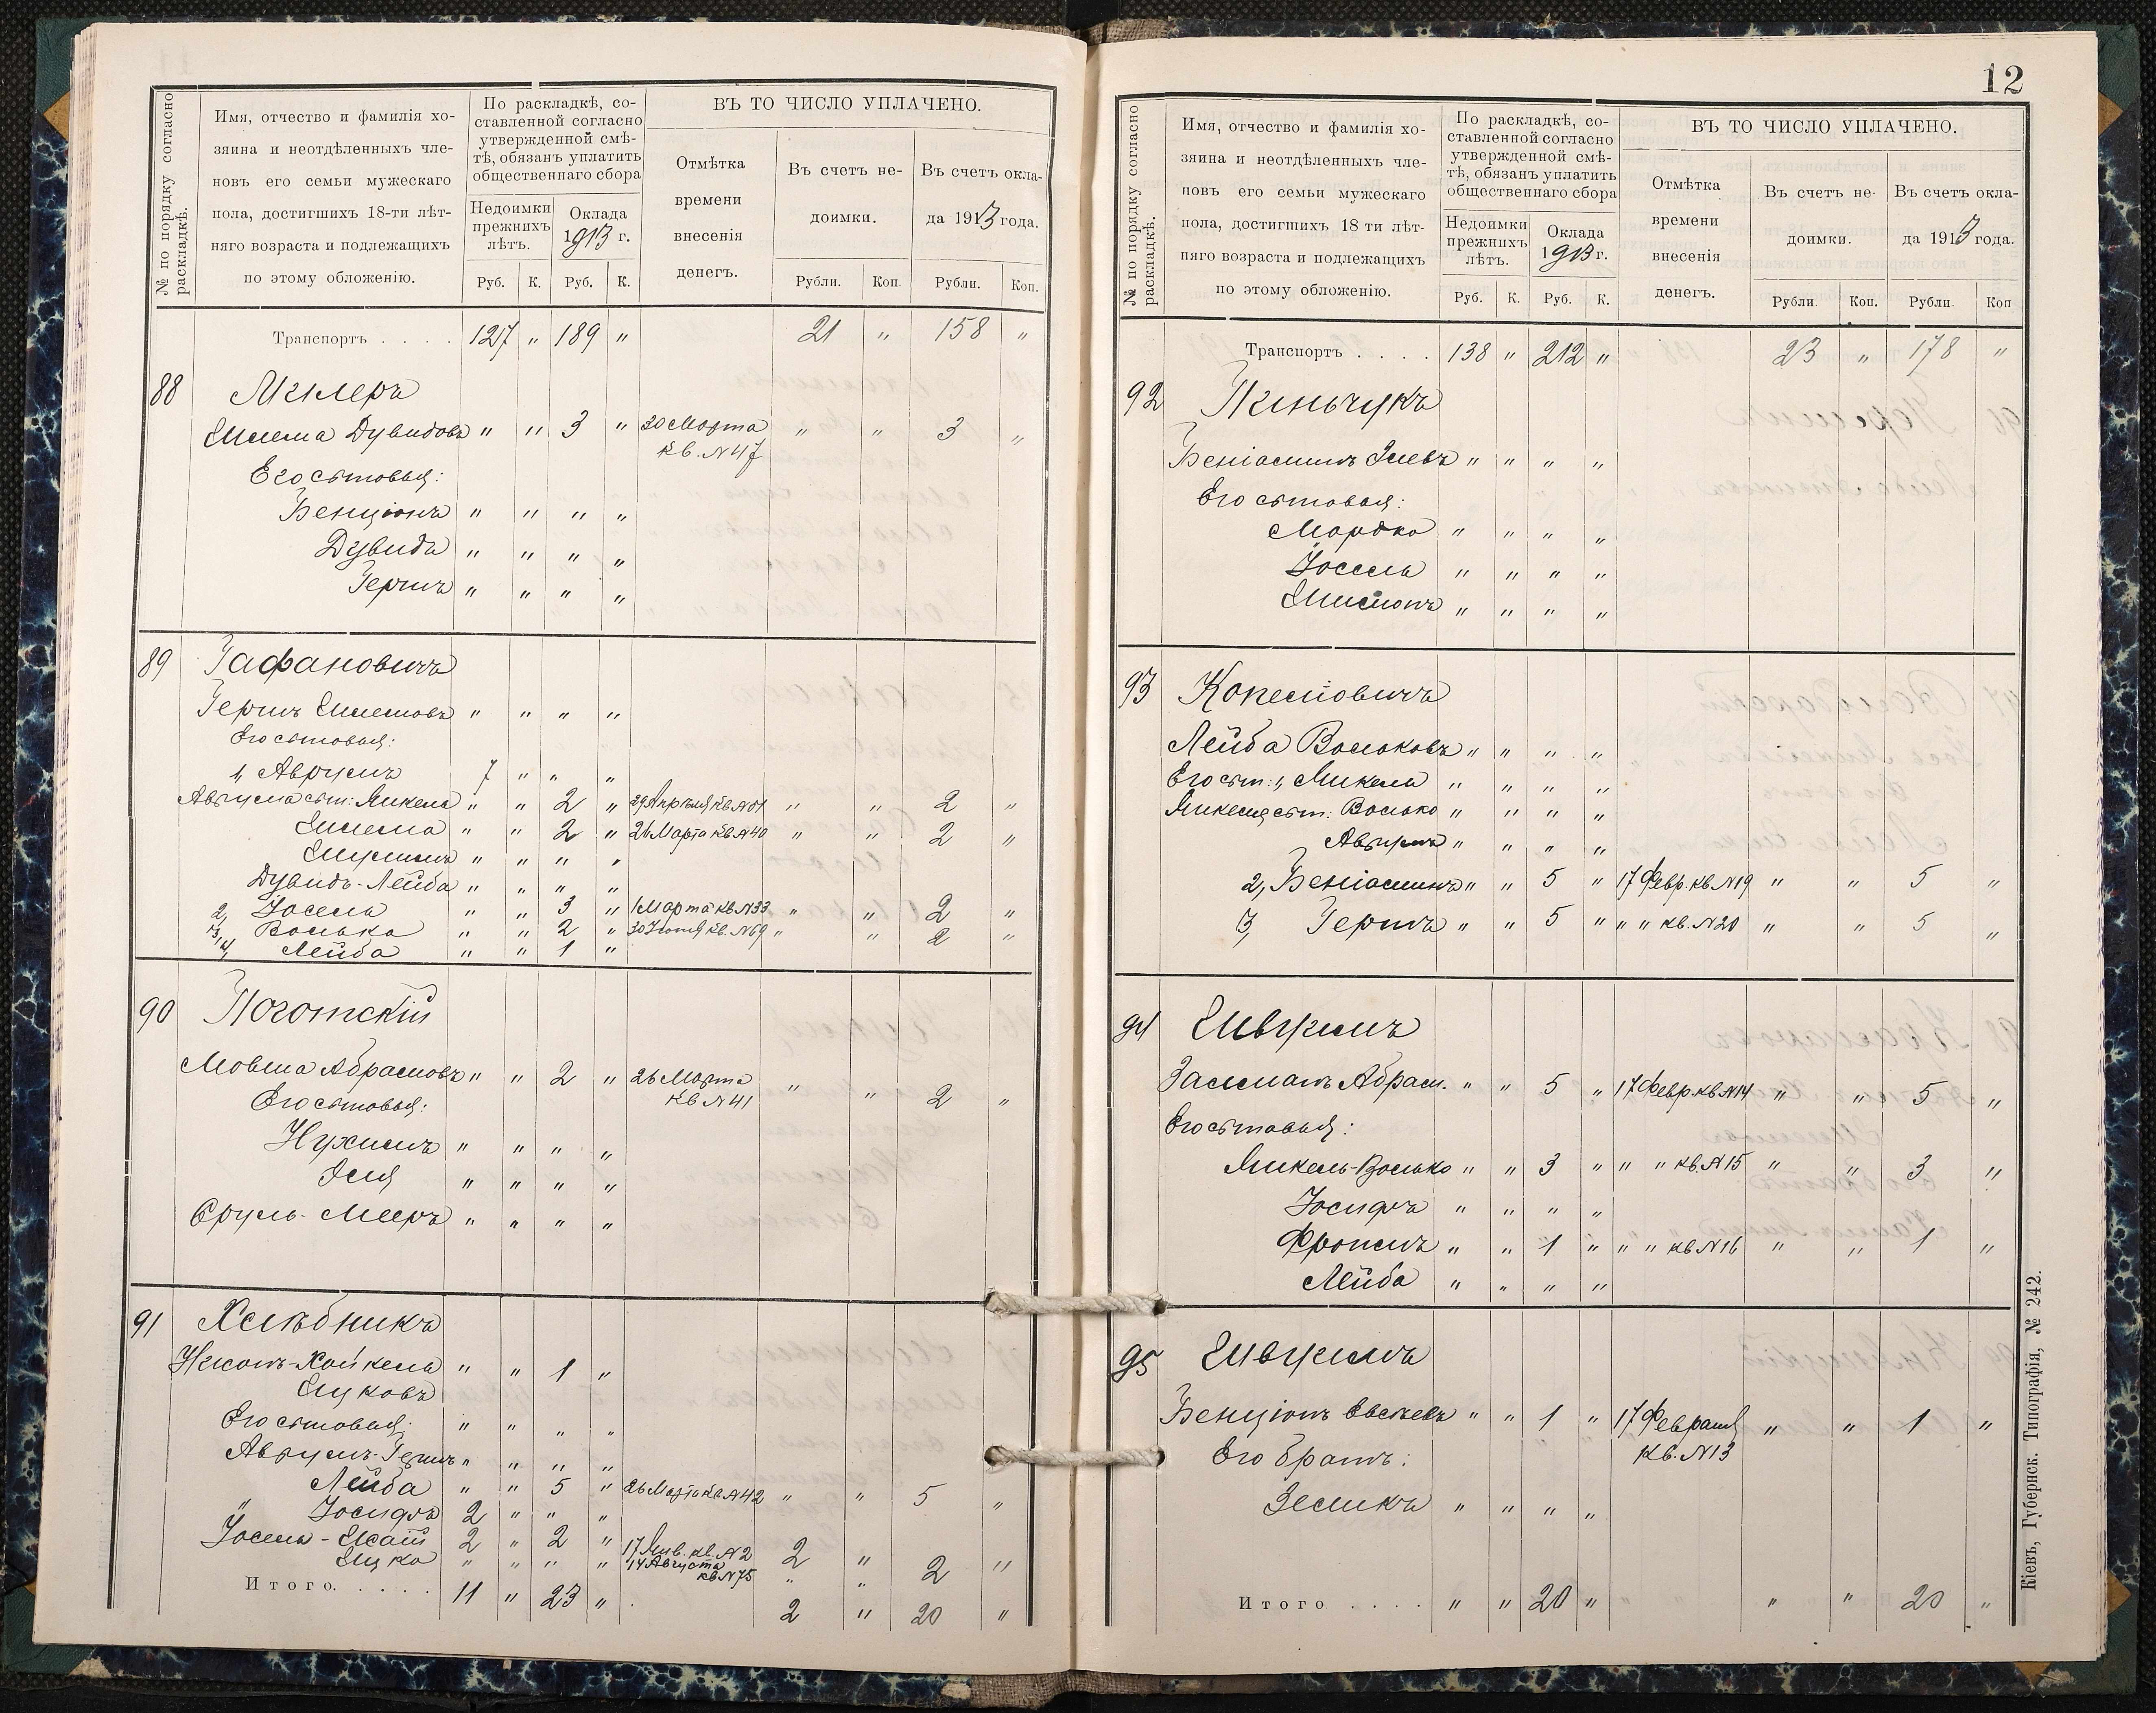 № по порядку согласно раскладкѣ.
Имя, отчество и фамилія хо-
зяина и неотдѣленныхъ чле-
новъ его семьи мужескаго
пола, достигшихъ 18-ти лѣт-
няго возраста и подлежащихъ
по этому обложенію.
По раскладкѣ, со-
ставленной согласно
утвержденной смѣ-
тѣ, обязанъ уплатить
общественнаго сбора
Недоимки прежнихъ лѣтъ.
Оклада 1913 г.
Руб. К. Руб. К.
ВЪ ТО ЧИСЛО УПЛАЧЕНО.
Отмѣтка
времени
внесенія
денегъ.
Въ счетъ не-
доимки.
Въ счетъ окла-
да 1913 года.
Рубли. Коп. Рубли. Коп.
Транспортъ . . . . 127 " 189 " 21 " 158 "
88 Миллеръ
Шлема Дувидовъ " " 3 " 20 Марта " " 3 "
кв. №47
Его сыновья:
Бенціонъ " " " "
Дувидъ " " " "
Гершъ " " " "
89 Гафановичъ
Гершъ Шлемовъ " " " "
Его сыновья:
1, Аврумъ 7 " " "
Аврума сын: Микель " " 2 " 29 Апрѣля кв №51 " " 2 "
Шлема " " 2 " 26 Марта кв №40 " " 2 "
Шулимъ " " " "
Дувидъ-Лейба " " " "
2, Іосель " " 3 " 1 Марта кв №33 " " 2 "
3, Волько " " 2 " 30 Іюня кв. №69 " " 2 "
4, Лейба " " 1 "
90 Поготскій
Мовша Абрамовъ " " 2 " 26 Марта " " 2 "
кв №41
Его сыновья:
Нухимъ " " " "
Эля " " " "
Сруль-Мееръ " " " "
91 Хлѣбникъ
Нисонъ-Хайкель " " 1 "
Ицковъ
Его сыновья: " " " "
Аврумъ-Гершъ " " " "
Лейба " " 5 " 26 Марта кв №42 " " 5 "
" Іосифъ 2 " " "
Іосель-Исай 2 " 2 " 17 Янв. кв. №2 2 " 2 "
Ицко " " " " 14 Августа " "
кв №75
Итого. . . . . 11 " 23 " 2 " 20 "
12
№ по порядку согласно раскладкѣ.
Имя, отчество и фамилія хо-
зяина и неотдѣленныхъ чле-
новъ его семьи мужескаго
пола, достигшихъ 18 ти лѣт-
няго возраста и подлежащихъ
по этому обложенію.
По раскладкѣ, со-
ставленной согласно
утвержденной смѣ-
тѣ, обязанъ уплатить
общественнаго сбора
Недоимки прежнихъ лѣтъ.
Оклада 1913 г.
Руб. К. Руб. К.
ВЪ ТО ЧИСЛО УПЛАЧЕНО.
Отмѣтка
времени
внесенія
денегъ.
Въ счетъ не-
доимки.
Въ счетъ окла-
да 1913 года.
Рубли. Коп. Рубли. Коп
Транспортъ . . . . 138 " 212 " 23 " 178 "
92 Пиньчукъ
Беніаминъ Элевъ " " " "
Его сыновья:
Мордко " " " "
Іосель " " " "
Шимонъ " " " "
93 Копелiовичъ
Лейба Вольковъ " " " "
Его сын: 1, Микель " " " "
Микеля сын: Волько " " " "
Аврумъ " " " "
2, Беніаминъ " " 5 " 17 Февр. кв №19 " " 5 "
3, Гершъ " " 5 " " " кв. №20 " " 5 "
94 Шврумъ
Залманъ Абрам. " " 5 " 17 Февр кв №14 " " 5 "
Его сыновья:
Микель-Волько " " 3 " " " кв. №15 " " 3 "
Іосифъ " " " "
Фроимъ " " 1 " " " кв №16 " " 1 "
Лейба " " " "
95 Шврумъ
Бенціонъ Евсѣевъ " " 1 " 17 Февраля " " 1 "
кв. №13
Его братъ:
Зеликъ " " " "
Итого . . . . " " 20 " " " 20 "
Кіевъ, Губернск. Типографія, № 242.